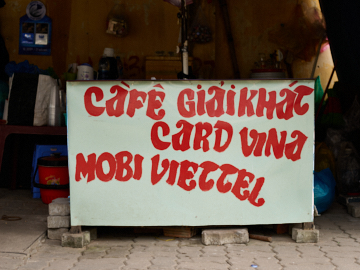 CAFÊ GIẢI KHÁT
CARD VINA
MOBI VIETTEL